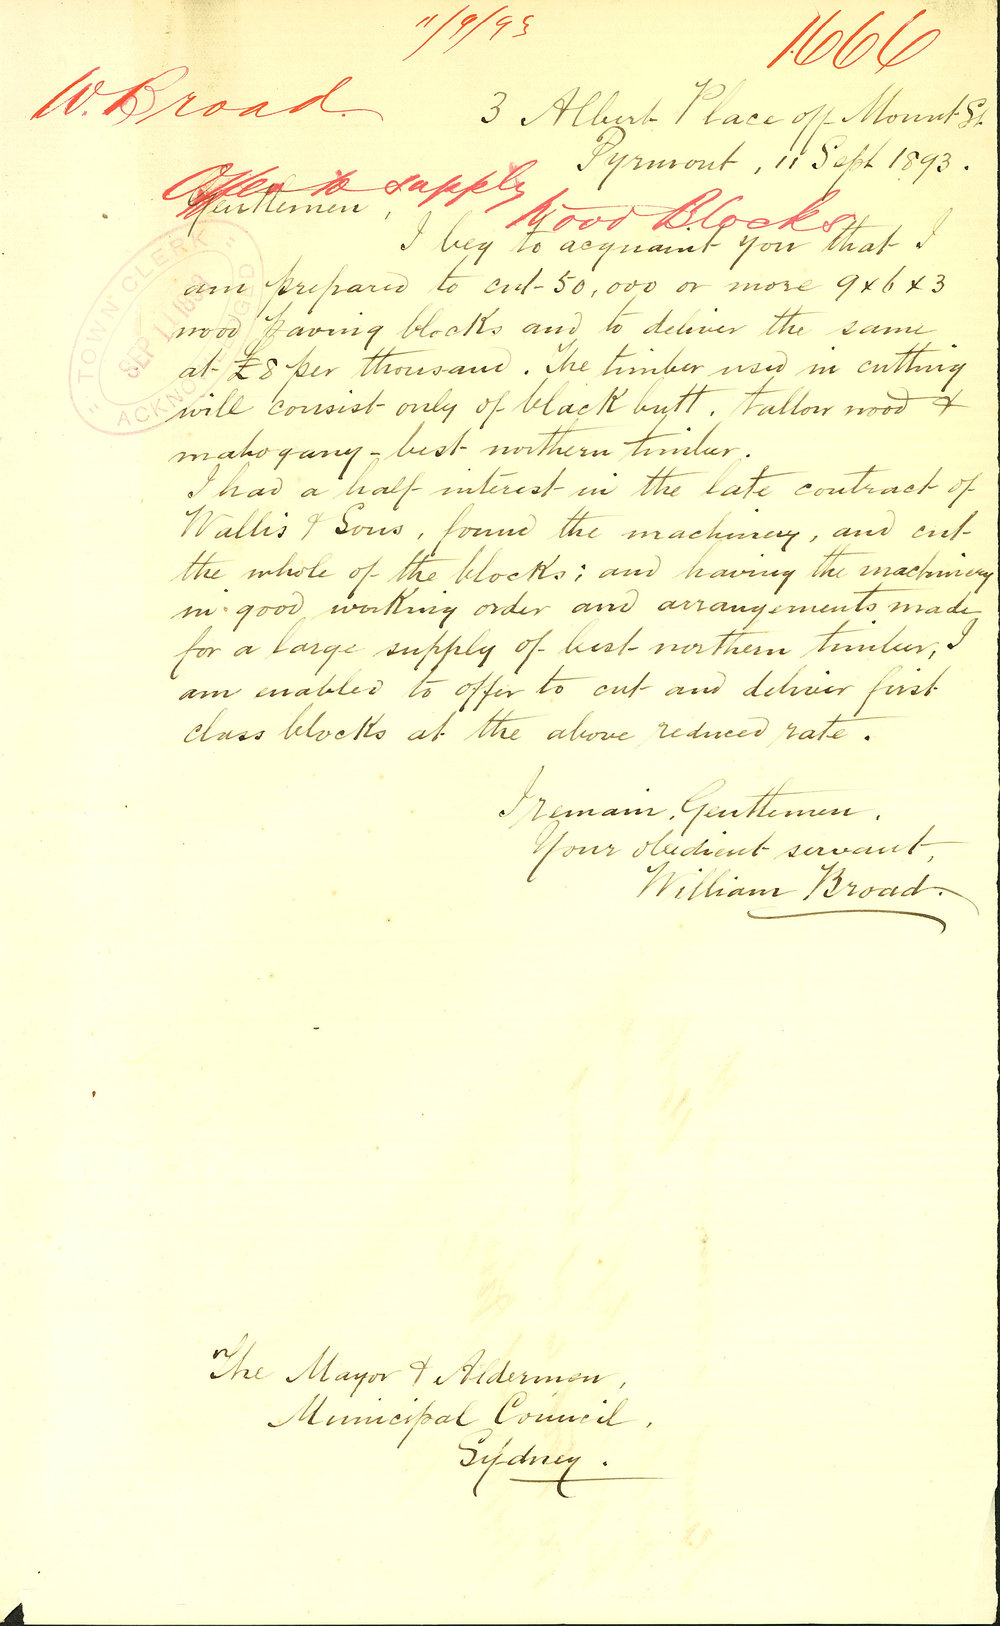 11/9/93
1666
W. Broad.
3 Albert Place off Mount St.
Pyrmont, 11 Sept 1893.
Offer to supply
Wood Blocks
Gentlemen,
"TOWN CLERK"
SEP 11 1893
ACKNOWLEDGED
I beg to acquaint you that I
am prepared to cut 50,000 or more 9 x 6 x 3
wood paving blocks and to deliver the same
at £8 per thousand. The timber used in cutting
will consist only of black butt, tallow wood &
mahogany - best northern timber.
I had a half interest in the late contract of
Wallis & Sons, found the machinery, and cut
the whole of the blocks; and having the machinery
in good working order and arrangements made
for a large supply of best northern timber, I
am enabled to offer to cut and deliver first
class blocks at the above reduced rate.
I remain, Gentlemen,
Your obedient servant,
William Broad.
The Mayor & Aldermen,
Municipal Council,
Sydney.